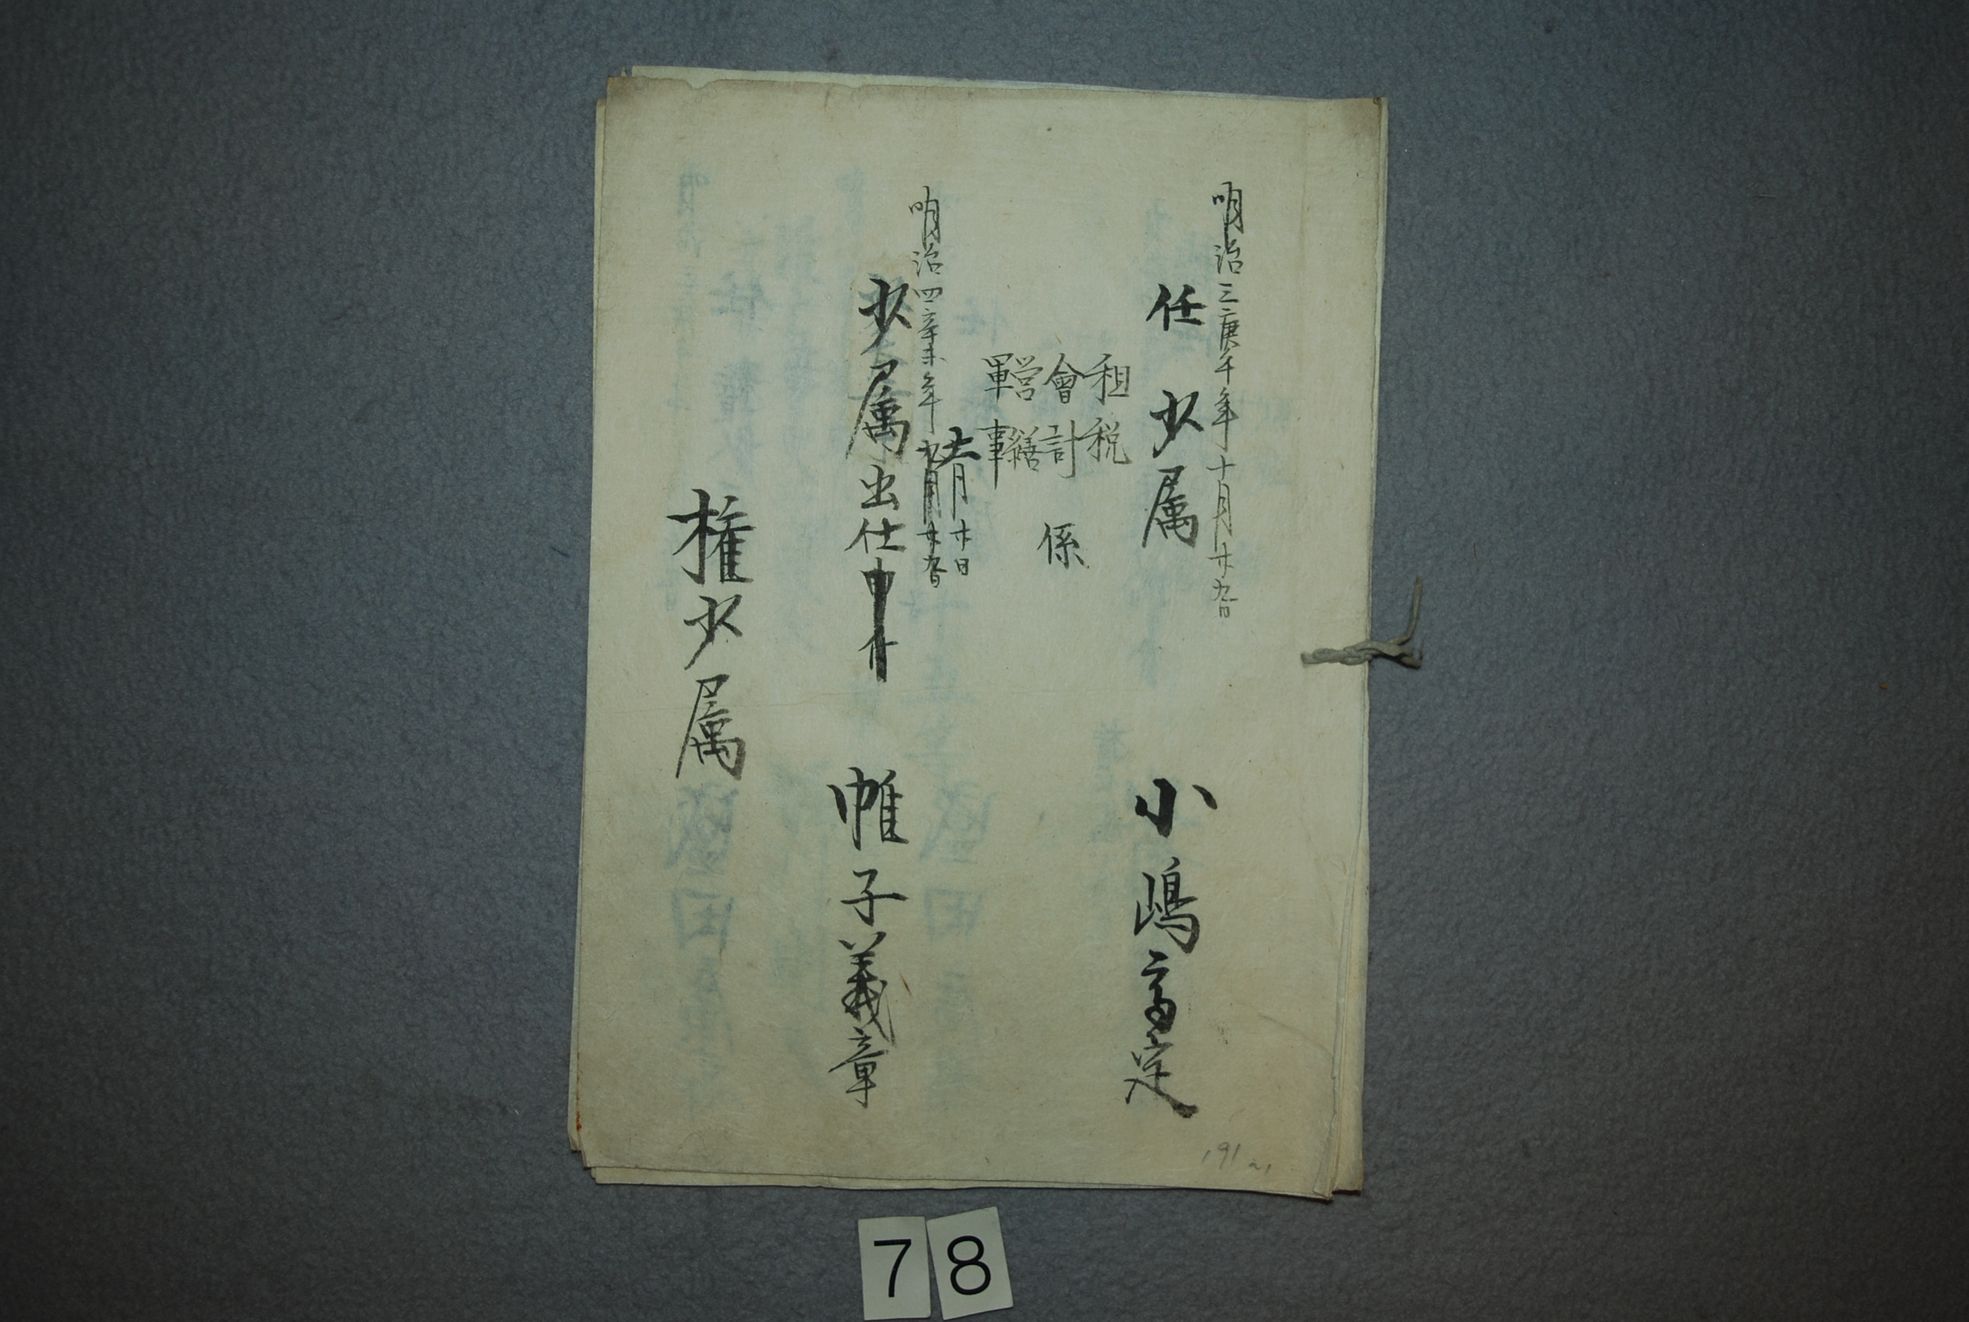 明治三庚午年十月廿九日
任少属
租税
會計
営繕
軍事
係
小嶋高定
明治四辛未年九月廿九日
十一月廿日
少属出仕申付
帷子義章
権少属
191
78